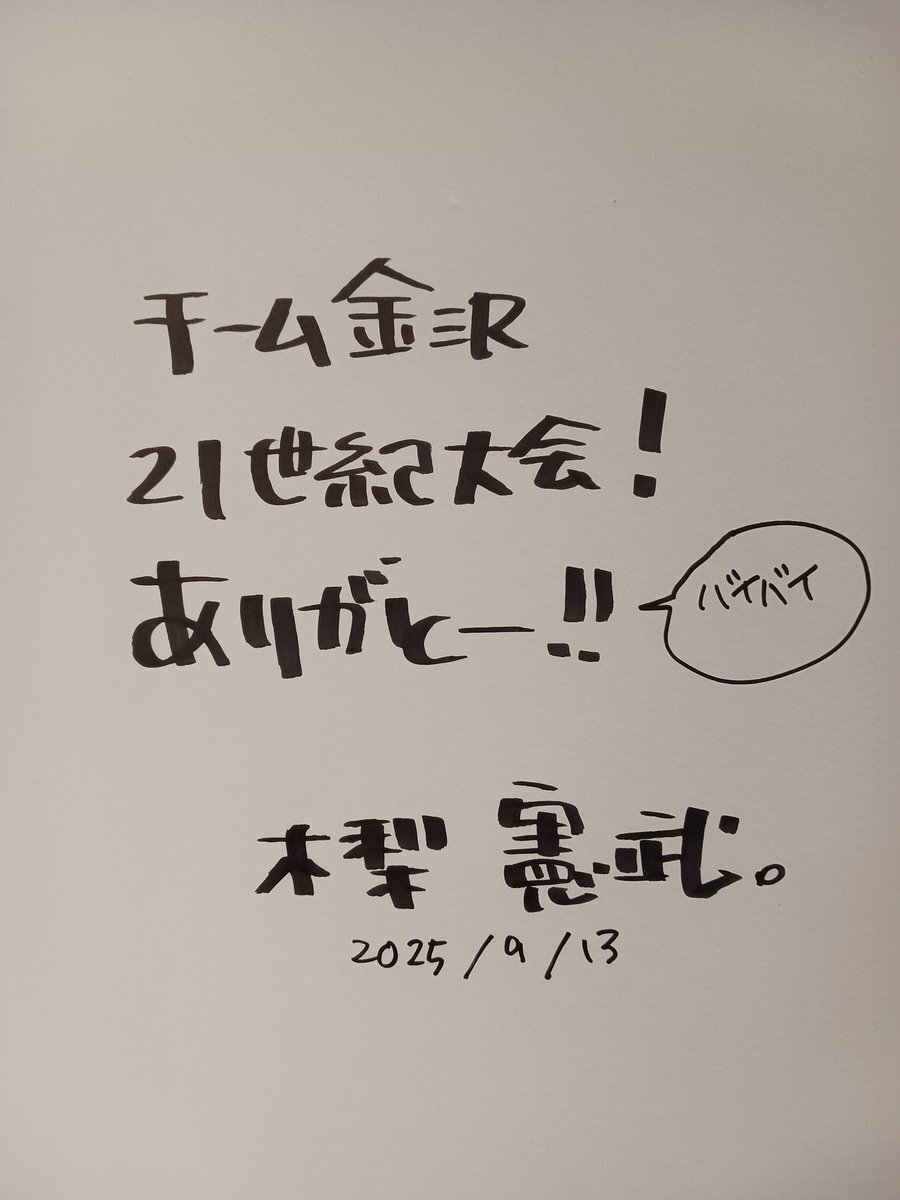 チーム金沢
21世紀大会!
ありがとー!!
バイバイ
木梨 憲武。
2025/9/13